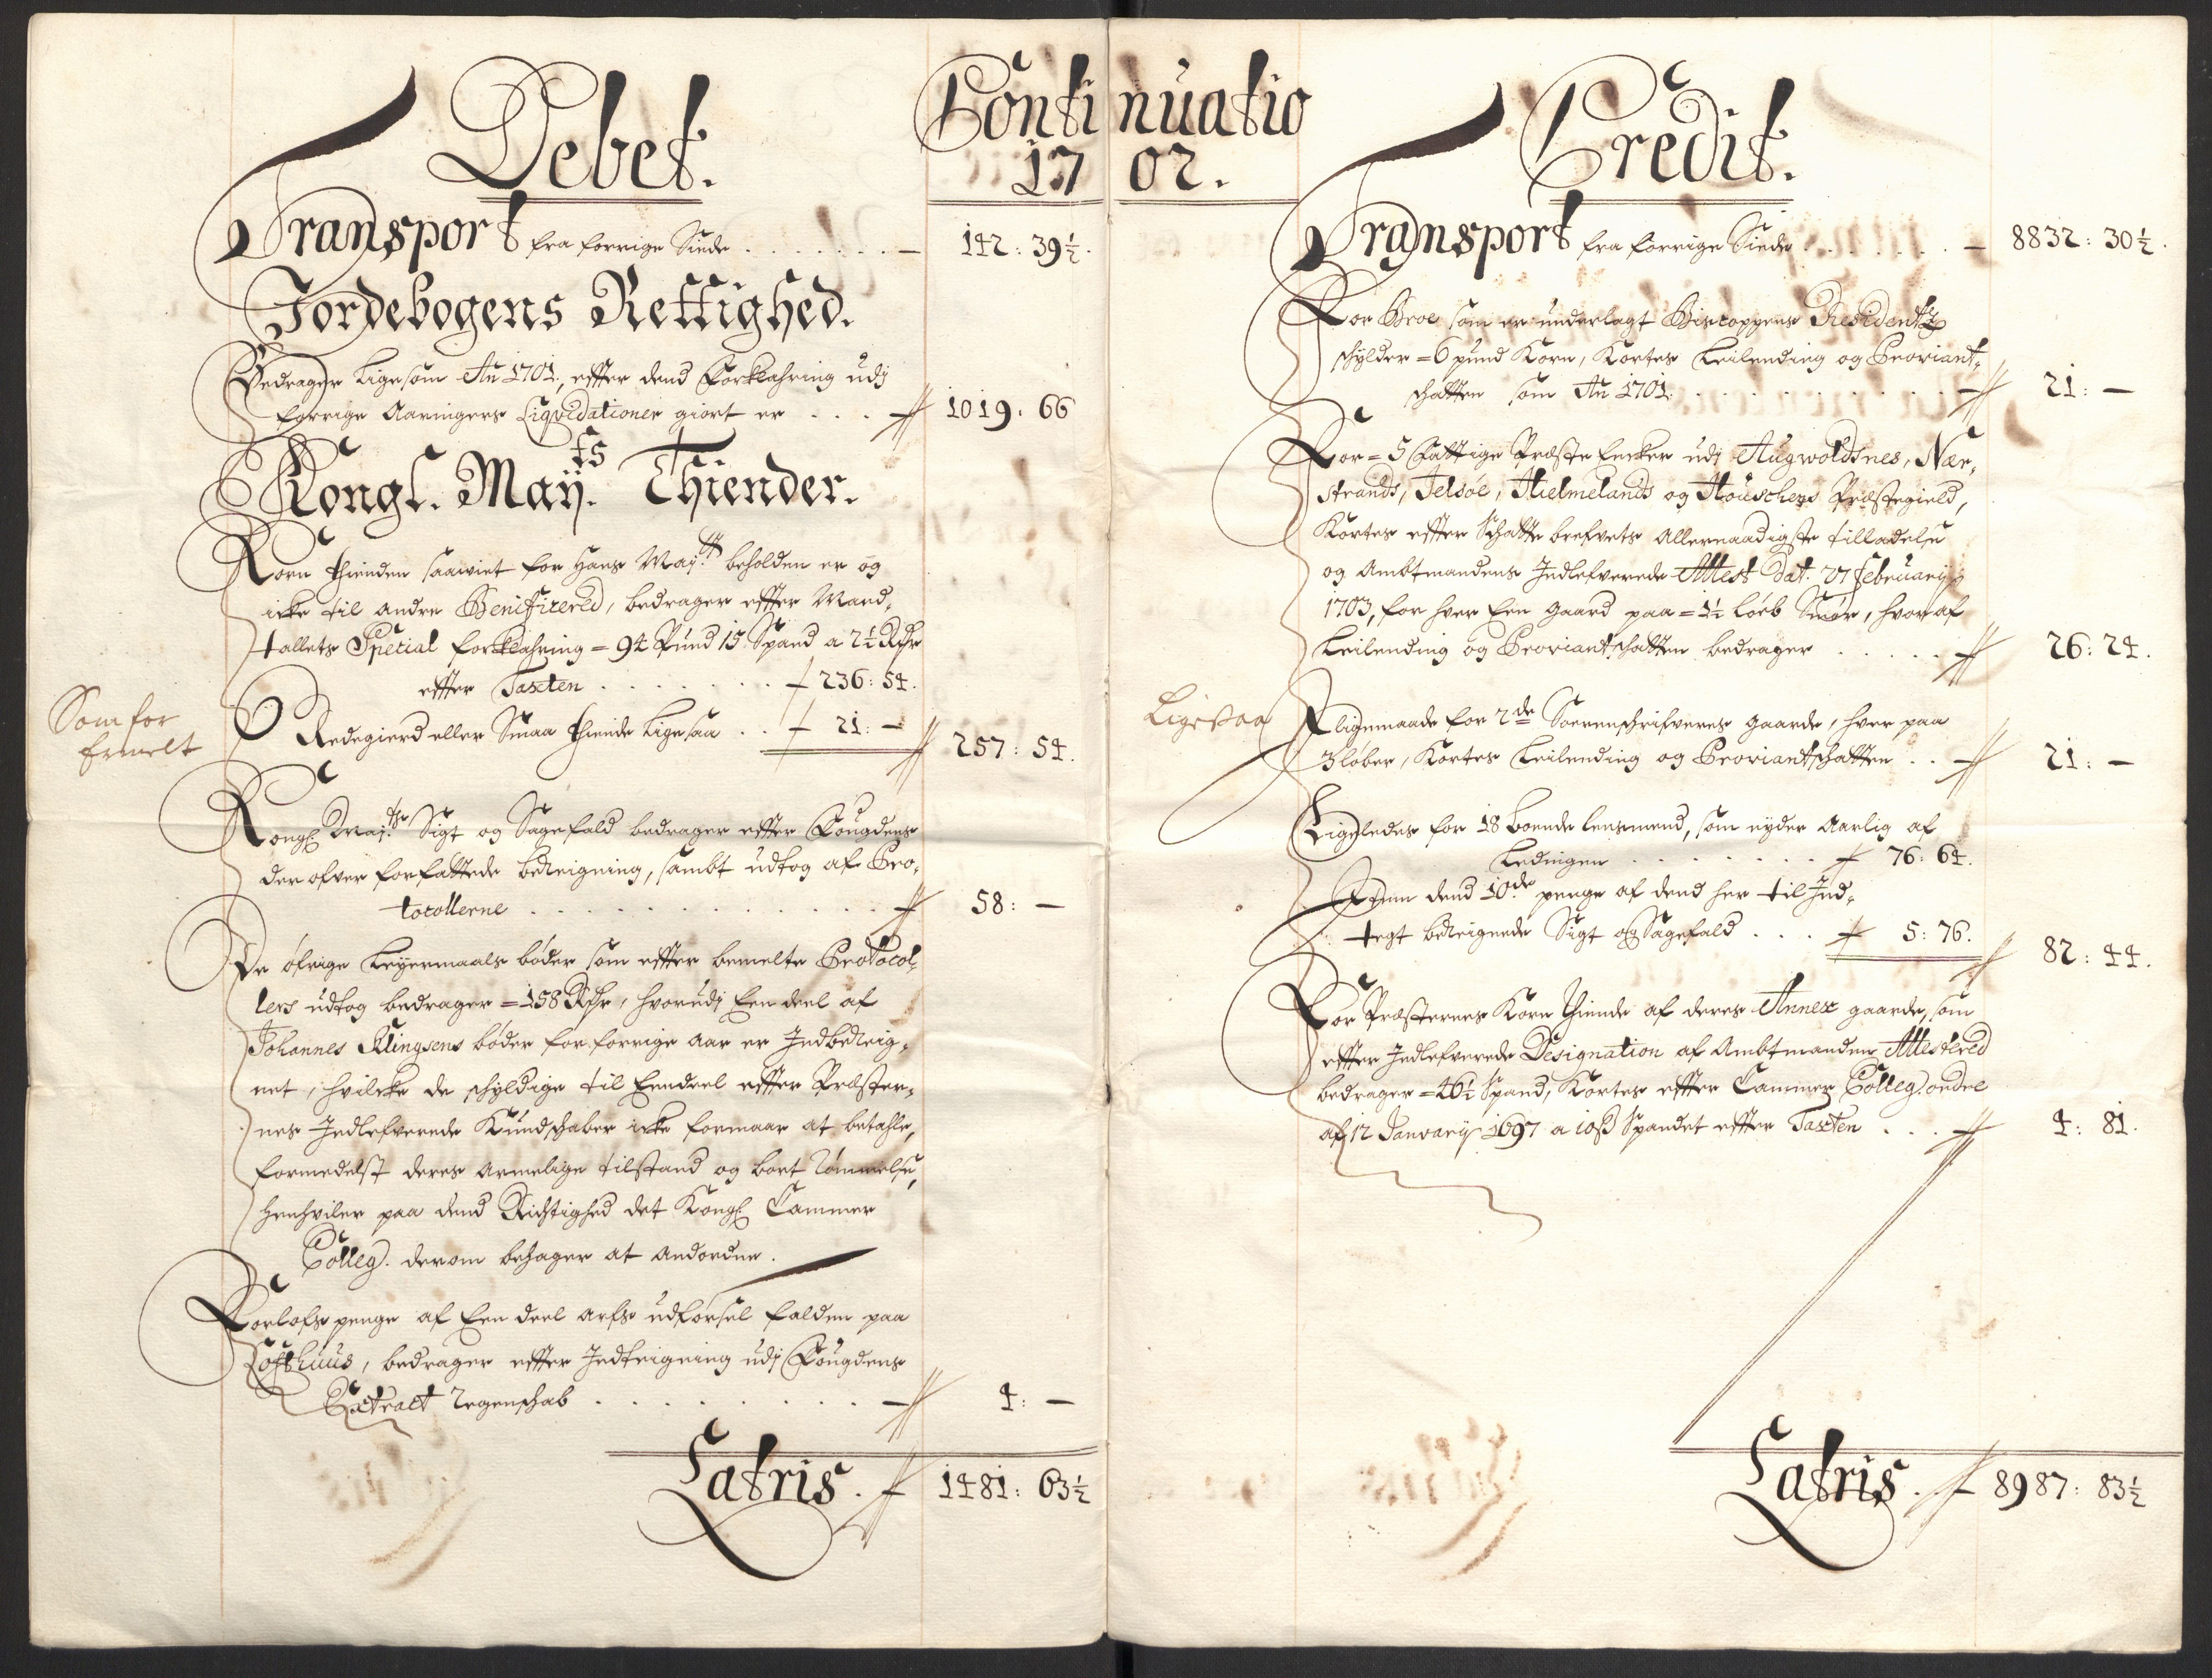 Continuatio
1702.
Debet.
Transport fra forrige Siide . . . . . . . — 142: 39½.
Jordebogens Rettighed.
Bedrager Ligesom Aõ 1701, effter dend Forklahring udj
forrige Aaringers Liqvidationer giort er . . . — 1019: 66
Kongl. Maÿ.ts Thiender.
Korn thienden saawiet for Hans Maj.tt beholden er og
icke til andre Benificered, bedrager effter Mand-
tallets Special forklahring = 94 Pund 15 Spand a 2½ Rdr
effter Taxten . . . . . . 236: 54.
Som for
Ermelt
Redegierd eller Smaa thiende Ligesaa . . 21: — 257: 54.
Kongl Maj.tts Sigt og Sagefald bedrager effter Fougdens
der ofver forfattede beregning, sambt udtog af Pro-
tocollerne . . . . . . . . . 58: —
De öfrige Leyermaals bøder som effter bemelte Protocol-
lers udtog bedrager = 158 Rdr, hvorudj Een deel af
Johannes Klingsens bøder for forrige aar er Indbereig-
net, hvilcke de schyldige til Eendeel effter Præster-
nes Indlefverede Kundschaber icke formaar at betahle,
formedelst deres armelige tilstand og bort rømmelse,
Henhviler paa dend Rictighed det Kongl Cammer
Colleg. derom behager at anordne.
Forlofs penge af Een deel arfs udførsel falden paa
Lofthuus, bedrager effter Indteigning udj Fougdens
Extract regenschab . . . . . . . . — 4: —
Latris. 1481: 63½
Credit.
Transport fra forrige Siide . . . . . . — 8832: 30½.
For Broe som er underlagt Biscoppens Residentz
schylder = 6 pund Korn, Kortes Leilending og Proviant-
schatten som Aõ 1701. . . . . . . . — 21: —
For = 5 Fattige Præste Encker udj Augwoldsnes, Nær-
strands, Jelsøe, Hielmelands og Houschens Præstegield,
Kortes effter Schatte brefvets Allernaadigste tilladelse
og Ambtmandens Indlefverede Attest dat. 27 februarij
1703, for hver Een gaard paa = 1½ Løeb Smør, hvor af
Leilending og Proviantschatten bedrager . . . . . 26: 24.
Ligesaa
Jligemaade for 2de Sorenschrifveres gaarde, hver paa
3 løber, Kortes Leilending og Proviantschatten . . — 21: —
Ligeledes for 18 boende Lensmend, som nyder Aarlig af
Ledingen . . . . . . . . 76: 64.
Item dend 10de penge af dend her til Ind-
tegt bereignede Sigt og Sagefald . . . 5: 76. 82: 44.
For Præsternes Korn thiende af deres Annex gaarde, som
effter Indlefverede Designation af Ambtmanden Attestered
bedrager = 46½ Spand, Kortes effter Cammer Colleg. ordre
af 12 Januarij 1697 a 10ß Spandet effter Taxten . . . 4: 81.
Latris . . 8987: 83½